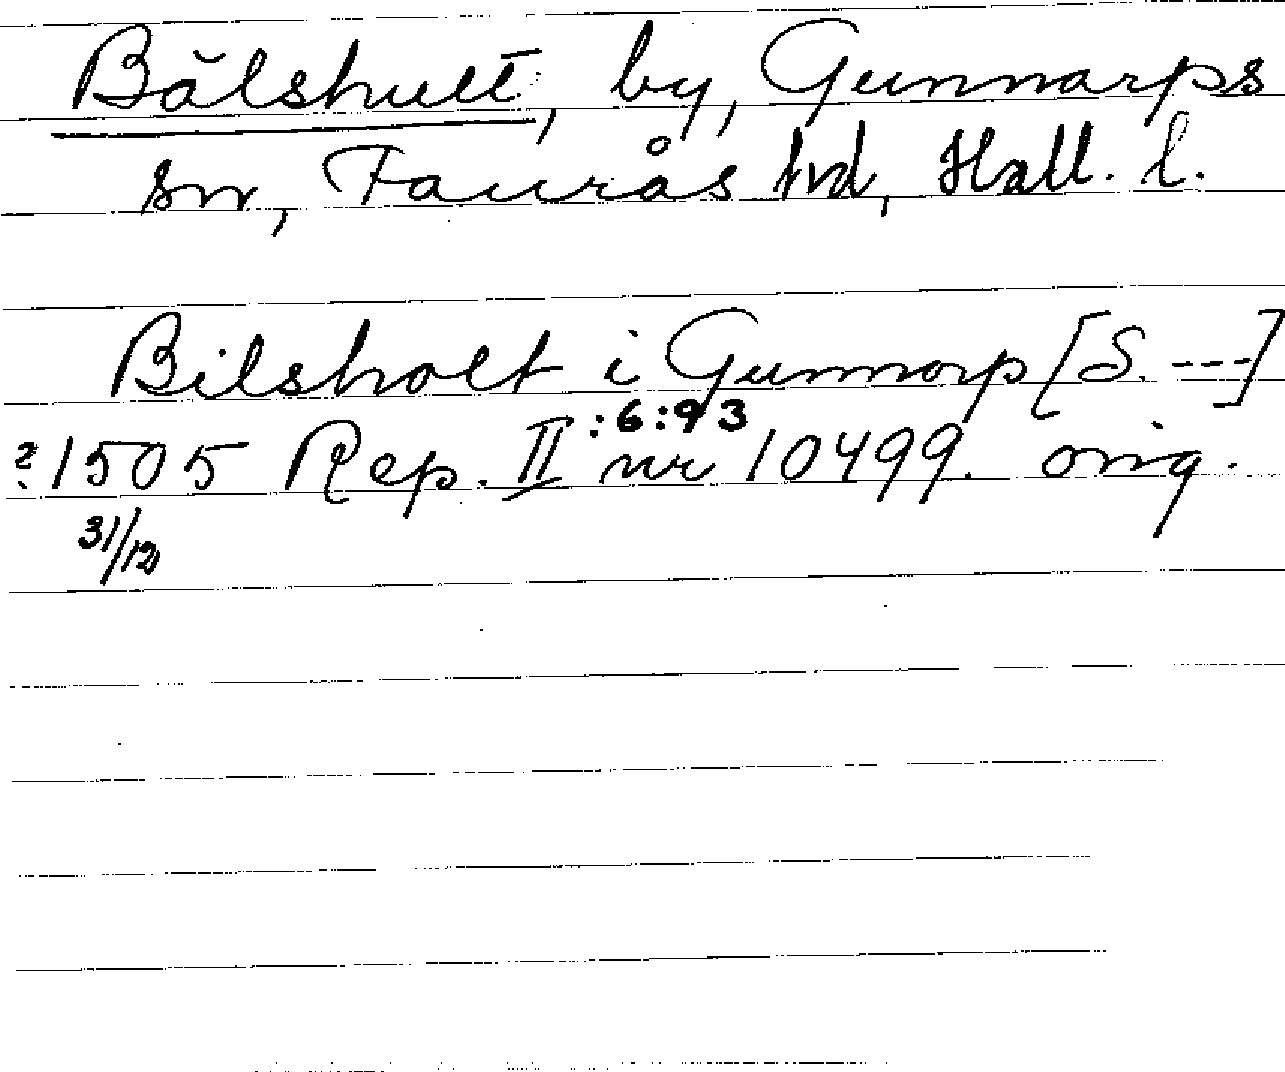 Bålshult, by, Gunnarps
sn, Faurås hd, Hall. l.
Bilsholt i Gunnorp [S. ---]
? 1505 Rep. II :6:93 nr 10499. orig.
31/12